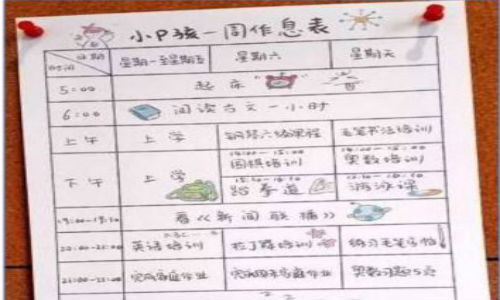 小P孩一周作息表
日期 星期一至星期五 星期六 星期天
时间
5:00 起床
6:00 阅读古文一小时
上午 上学 钢琴六级课程 毛笔书法培训
下午 上学 14:00-15:00 围棋培训 奥数培训
跆拳道 游泳课
看《新闻联播》
20:00-21:00 英语培训 拉丁舞培训 练习毛笔字帖
21:00-22:00 完成家庭作业 完成周末家庭作业 奥数习题5页